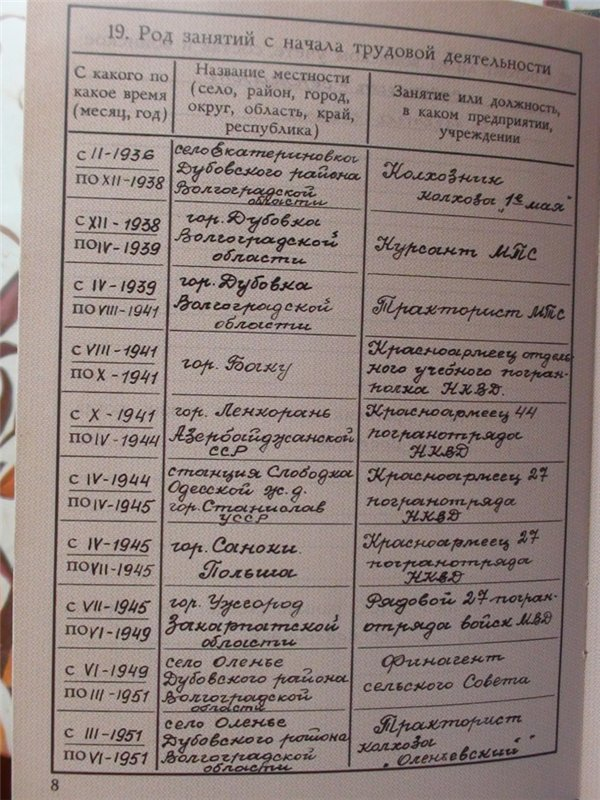 19. Род занятий с начала трудовой деятельности
С какого по
какое время
(месяц, год)
Название местности
(село, район, город,
округ, область, край,
республика)
Занятие или должность,
в каком предприятии,
учреждении
С II-1936
ПО XII-1938
село Екатериновка
Дубовского района
Волгоградской
области
Колхозник
колхоза „1е мая"
С XII-1938
ПО IV-1939
гор. Дубовка
Волгоградской
области
Курсант МТС
С IV-1939
ПО VIII-1941
гор. Дубовка
Волгоградской
области
Тракторист МТС
С VIII-1941
ПО X-1941
гор. Баку
Красноармеец отдель-
ного учебного погран-
полка НКВД.
С X-1941
ПО IV-1944
гор. Ленкорань
Азербайджанской
ССР
Красноармеец 44
погранотряда
НКВД
С IV-1944
ПО IV-1945
станция Слободка
Одесской ж.д.
гор. Станислав
УССР
Красноармеец 27
погранотряда
НКВД
С IV-1945
ПО VII-1945
гор. Саноки.
Польша
Красноармеец 27
погранотряда
НКВД
С VII-1945
ПО VI-1949
гор. Ужгород
Закарпатской
области
Рядовой 27 погран-
отряда войск МВД
С VI-1949
ПО III-1951
село Оленье
Дубовского района
Волгоградской
области
Финагент
сельского Совета
С III-1951
ПО VI-1951
село Оленье
Дубовского района
Волгоградской
области
Тракторист
колхоза
„Оленьевский"
8